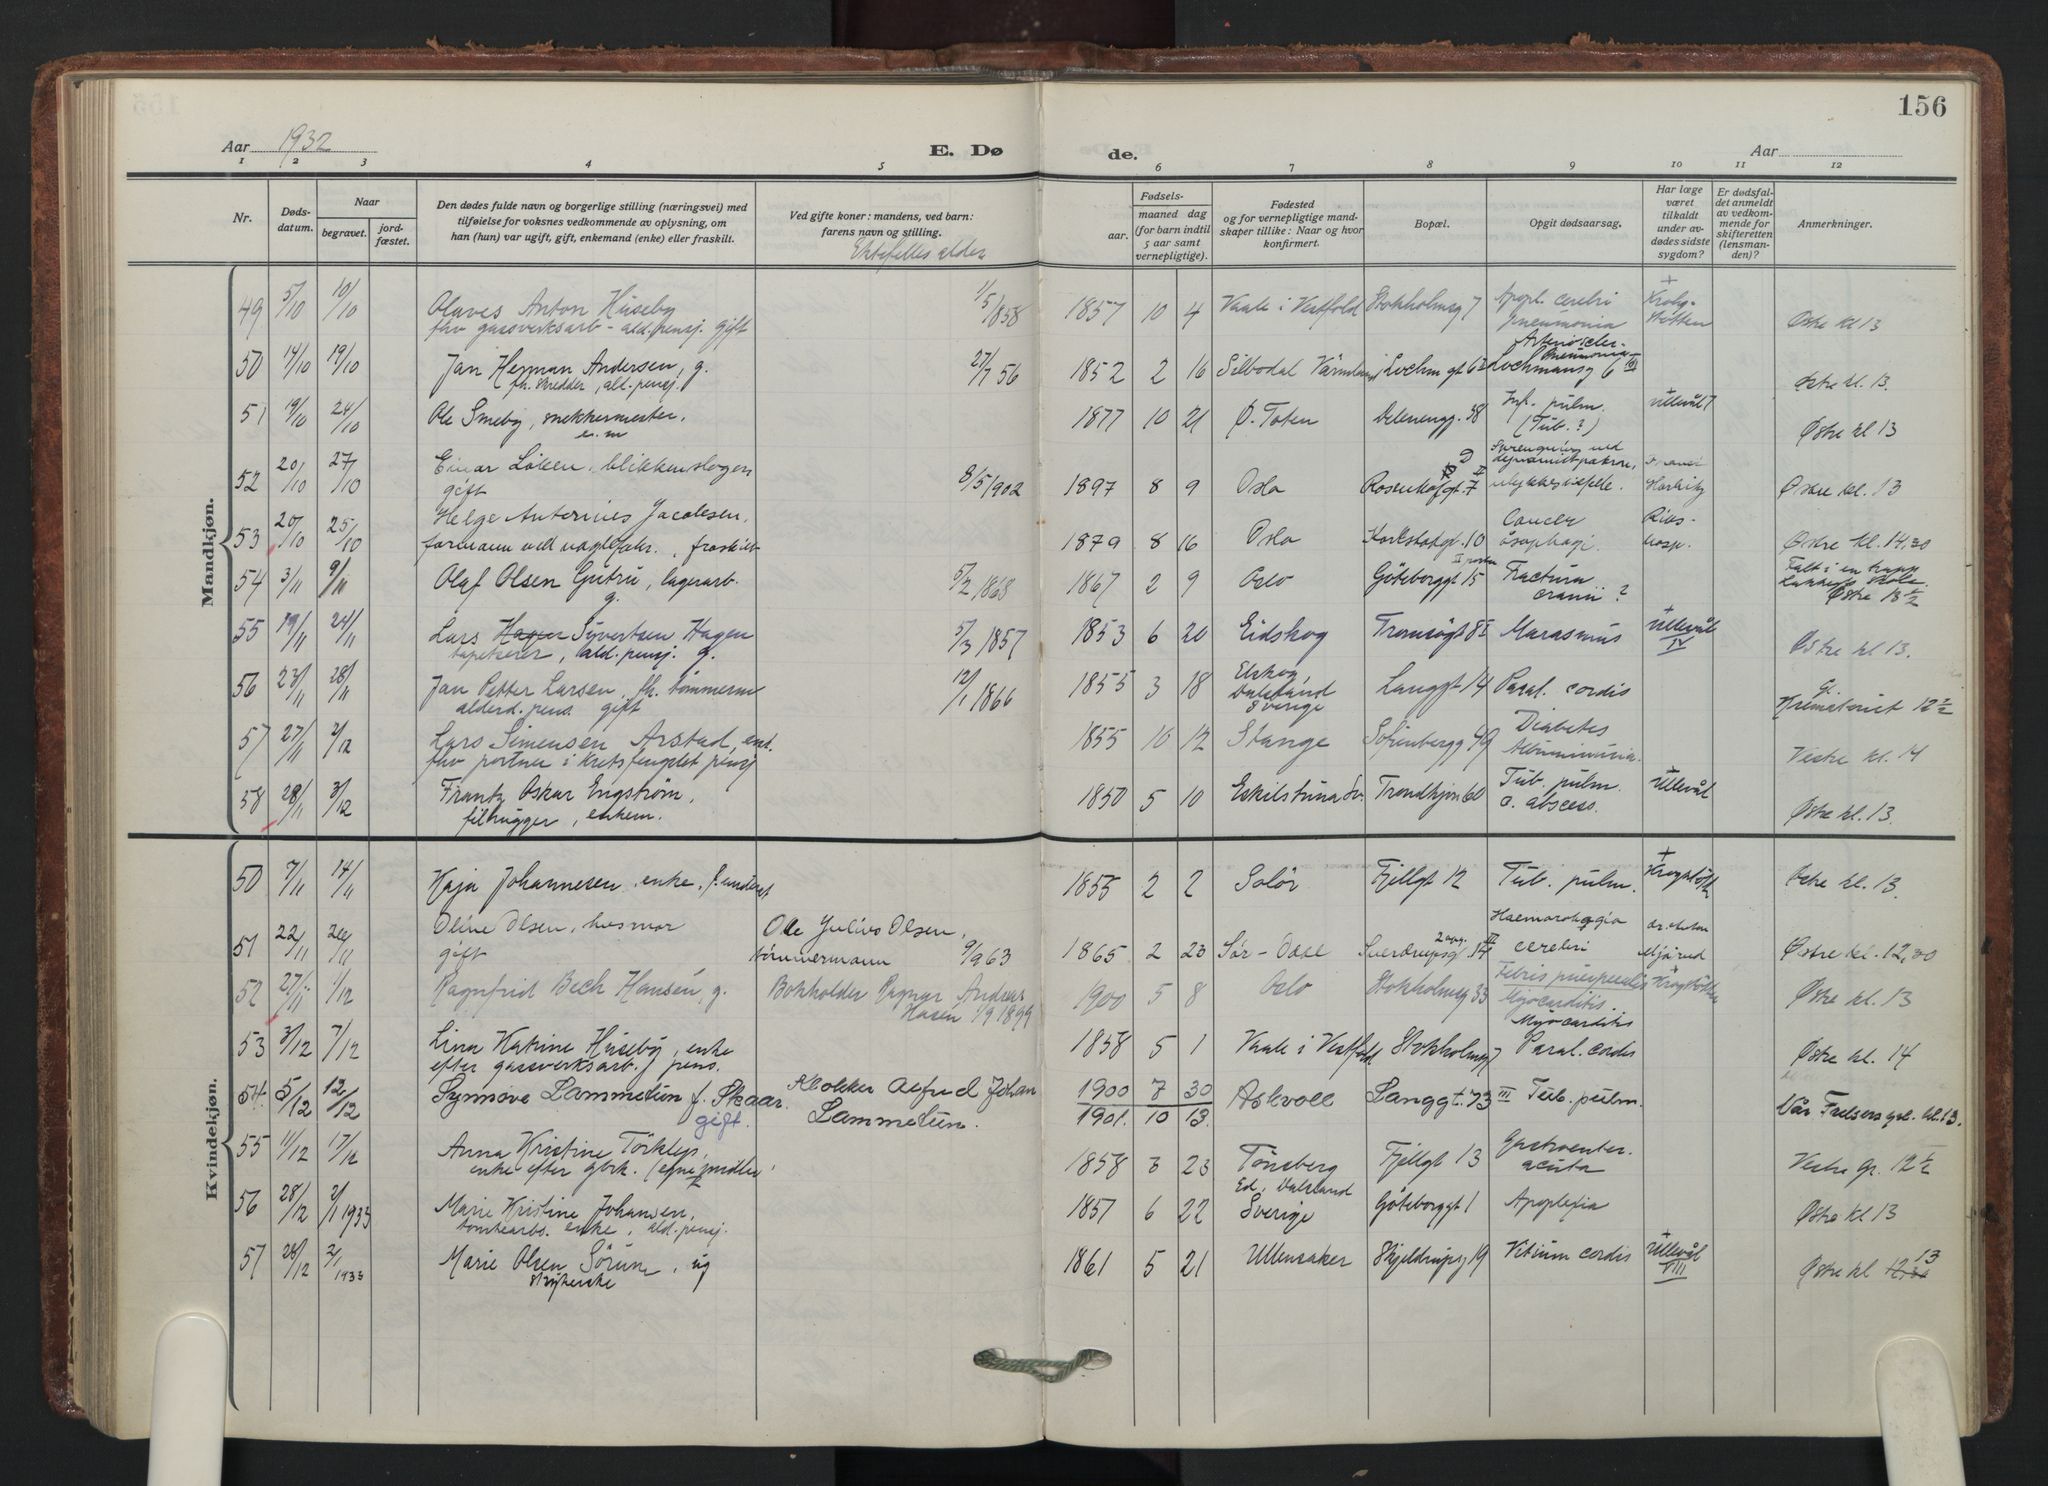 156
Aar 1932
E. Dø
de.
Aar
1 2 3 4 5 6 7 8 9 10 11 12
Nr.
Døds-
datum.
Naar
begravet.
jord-
fæstet.
Den dødes fulde navn og borgerlige stilling (næringsvei) med
tilføielse for voksnes vedkommende av oplysning, om
han (hun) var ugift, gift, enkemand (enke) eller fraskilt.
Ved gifte koner: mandens, ved barn:
farens navn og stilling.
Ektefelles alder
Fødsels-
aar.
maaned dag
(for barn indtil
5 aar samt
vernepligtige).
Fødested
og for vernepligtige mand-
skaper tillike: Naar og hvor
konfirmert.
Bopæl.
Opgit dødsaarsag.
Har læge
været
tilkaldt
under av-
dødes sidste
sygdom?
Er dødsfal-
det anmeldt
av vedkom-
mende for
skifteretten
(lensman-
den)?
Anmerkninger.
Mandkjøn.
49 5/10 10/10 Olaves Anton Huseby 1/5 1858 1857 10 4 Vaale i Vestfold Stokholmsg 7 Apopl. cerebri + Krohg-
fhv gassverksarb - ald.pensj. gift pneumonia støtten Østre kl 13
50 14/10 19/10 Jan Herman Andersen, g. 27/7 56 1852 2 16 Silbodal Värmland Lochmansg 6 III Arterioscler. Pneumonia
fh. skredder, ald. pensj. Østre kl. 13.
51 19/10 24/10 Ole Smeby, snekkermester, 1877 10 21 Ø. Toten Delenengg. 38 Inf. pulm. Ullevål
e.m (Tub.?) Østre kl 13
52 20/10 27/10 Einar Løken, blikkenslager 8/5 1902 1897 8 9 Oslo Rosenhofgt. 7 Sprengning ved
gift dynamitpatron, ulykkestilfelle. Harbitz Østre kl. 13
53 20/10 25/10 Helge Antonius Jacobsen, 1879 8 16 Oslo Karlstadgt. 10 Cancer Riks-
formann ved naglefabr., fraskilt øsophagi. hosp. Østre kl. 14,30
54 3/11 9/11 Olaf Olsen Gutru, lagerarb. 5/2 1868 1867 2 9 Oslo Göteborggt 15 Fractura Falt i en trapp
g. cranii? Lakkeg. skole. Østre 13 1/2
55 19/11 24/11 Lars Hagen Syvertsen Hagen 5/3 1857 1853 6 20 Eidskog Tromsøgt 8 I Marasmus + Ullevål
tapetserer, ald. pensj. g. IV Østre kl 13.
56 23/11 28/11 Jan Petter Larsen, fh. tømmerm 12/1 1866 1855 3 18 Elskog, Langgt 14 Paral. cordis Gl.
alderd. pens. gift Dalsland Sverige Krematoriet 12 1/2
57 27/11 2/12 Lars Simensen Arstad, enk. 1855 10 12 Stange Sofienbergg 49 Diabetes
fhv portner i kretsfengslet pensj Albuminuria. Vestre kl. 14
58 28/11 3/12 Frantz Oskar Engstrøm, 1850 5 10 Eskilstuna Sv. Trondhjem 60 Tub. pulm. + Ullevål
filhugger, enkem. c. abscess. Østre kl. 13.
Kvindekjøn.
50 7/11 14/11 Kaja Johannesen, enke, f. underst 1855 2 2 Solør Fjellgt 12 Tub. pulm. + Krogstøtt Østre kl. 13.
51 22/11 26/11 Oline Olsen, husmor Ole Julius Olsen, 1865 2 23 Sør-Odal Sverdrupsg. 14 III Haemorrhagia
gift tømmermann 9/9 63 2 opg. cerebri Mjårud Østre kl. 12,30
52 27/11 1/12 Ragnfrid Bech Hansen, g. Bokholder Ragnar Andreas 1900 5 8 Oslo Stokholmsg 33 Febris puerperalis Krogstøtten
Hansen 1/9 1899 Myocarditis. Østre kl 13
53 3/12 7/12 Lina Katrine Huseby, enke 1858 5 1 Vaale i Vestfold Stokholmsg 7 Myocarditis
efter gassverksarb. pens. Paral. cordis Østre kl. 14
54 5/12 12/12 Synnøve Lammetun f. Skaar. Klokker Alfred Johan 1900 7 30 Askvoll Langgt. 73 III Tub. pulm.
gift. Lammetun. 1901. 10 13. Vår Frelsers grl. kl. 13.
55 11/12 17/12 Anna Kristine Törklep, 1858 3 23 Tönsberg Fjellgt 13 Gastroenter.
enke efter gbrk. (egne midler) acuta Vestre Gr. 12 1/2
56 28/12 2/1 1933 Marie Kristine Johansen, 1857 6 22 Ed, Dalsland Göteborggt 1 Apoplexia
tomtearb. enke, ald. pensj. Sverige Østre kl 13
57 28/12 2/1 1933 Marie Olsen Sørum, ug 1861 5 21 Ullensaker Skjeldrupsg 19 Vitium cordis Ullevål
strykerske VIII Østre kl 12,30 13